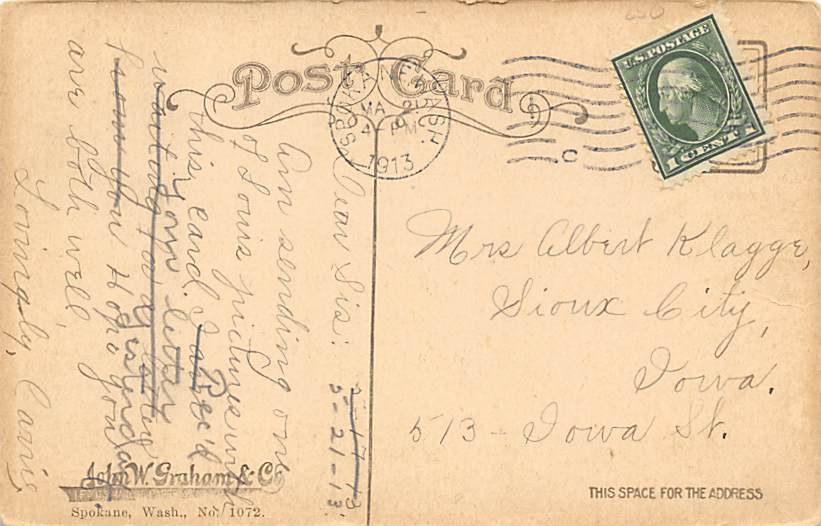 Post Card
SPOKANE WASH
MA 21
4 PM
1913
U.S. POSTAGE
1 CENT 1
5-17-13.
5-21-13.
Dear Sis:
Am sending one
of Louis pictures with
this card. I Rec'd
your letter yesterday
waiting a letter
from you Hope you
are both well,
Lovingly, Carrie
Mrs Albert Klagge,
Sioux City,
Iowa.
513 - Iowa St.
John W. Graham & Co
Spokane, Wash., No. 1072.
THIS SPACE FOR THE ADDRESS